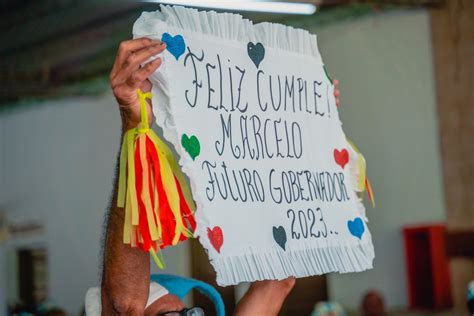 FELIZ CUMPLE!
MARCELO
FUTURO GOBERNADOR
2023..